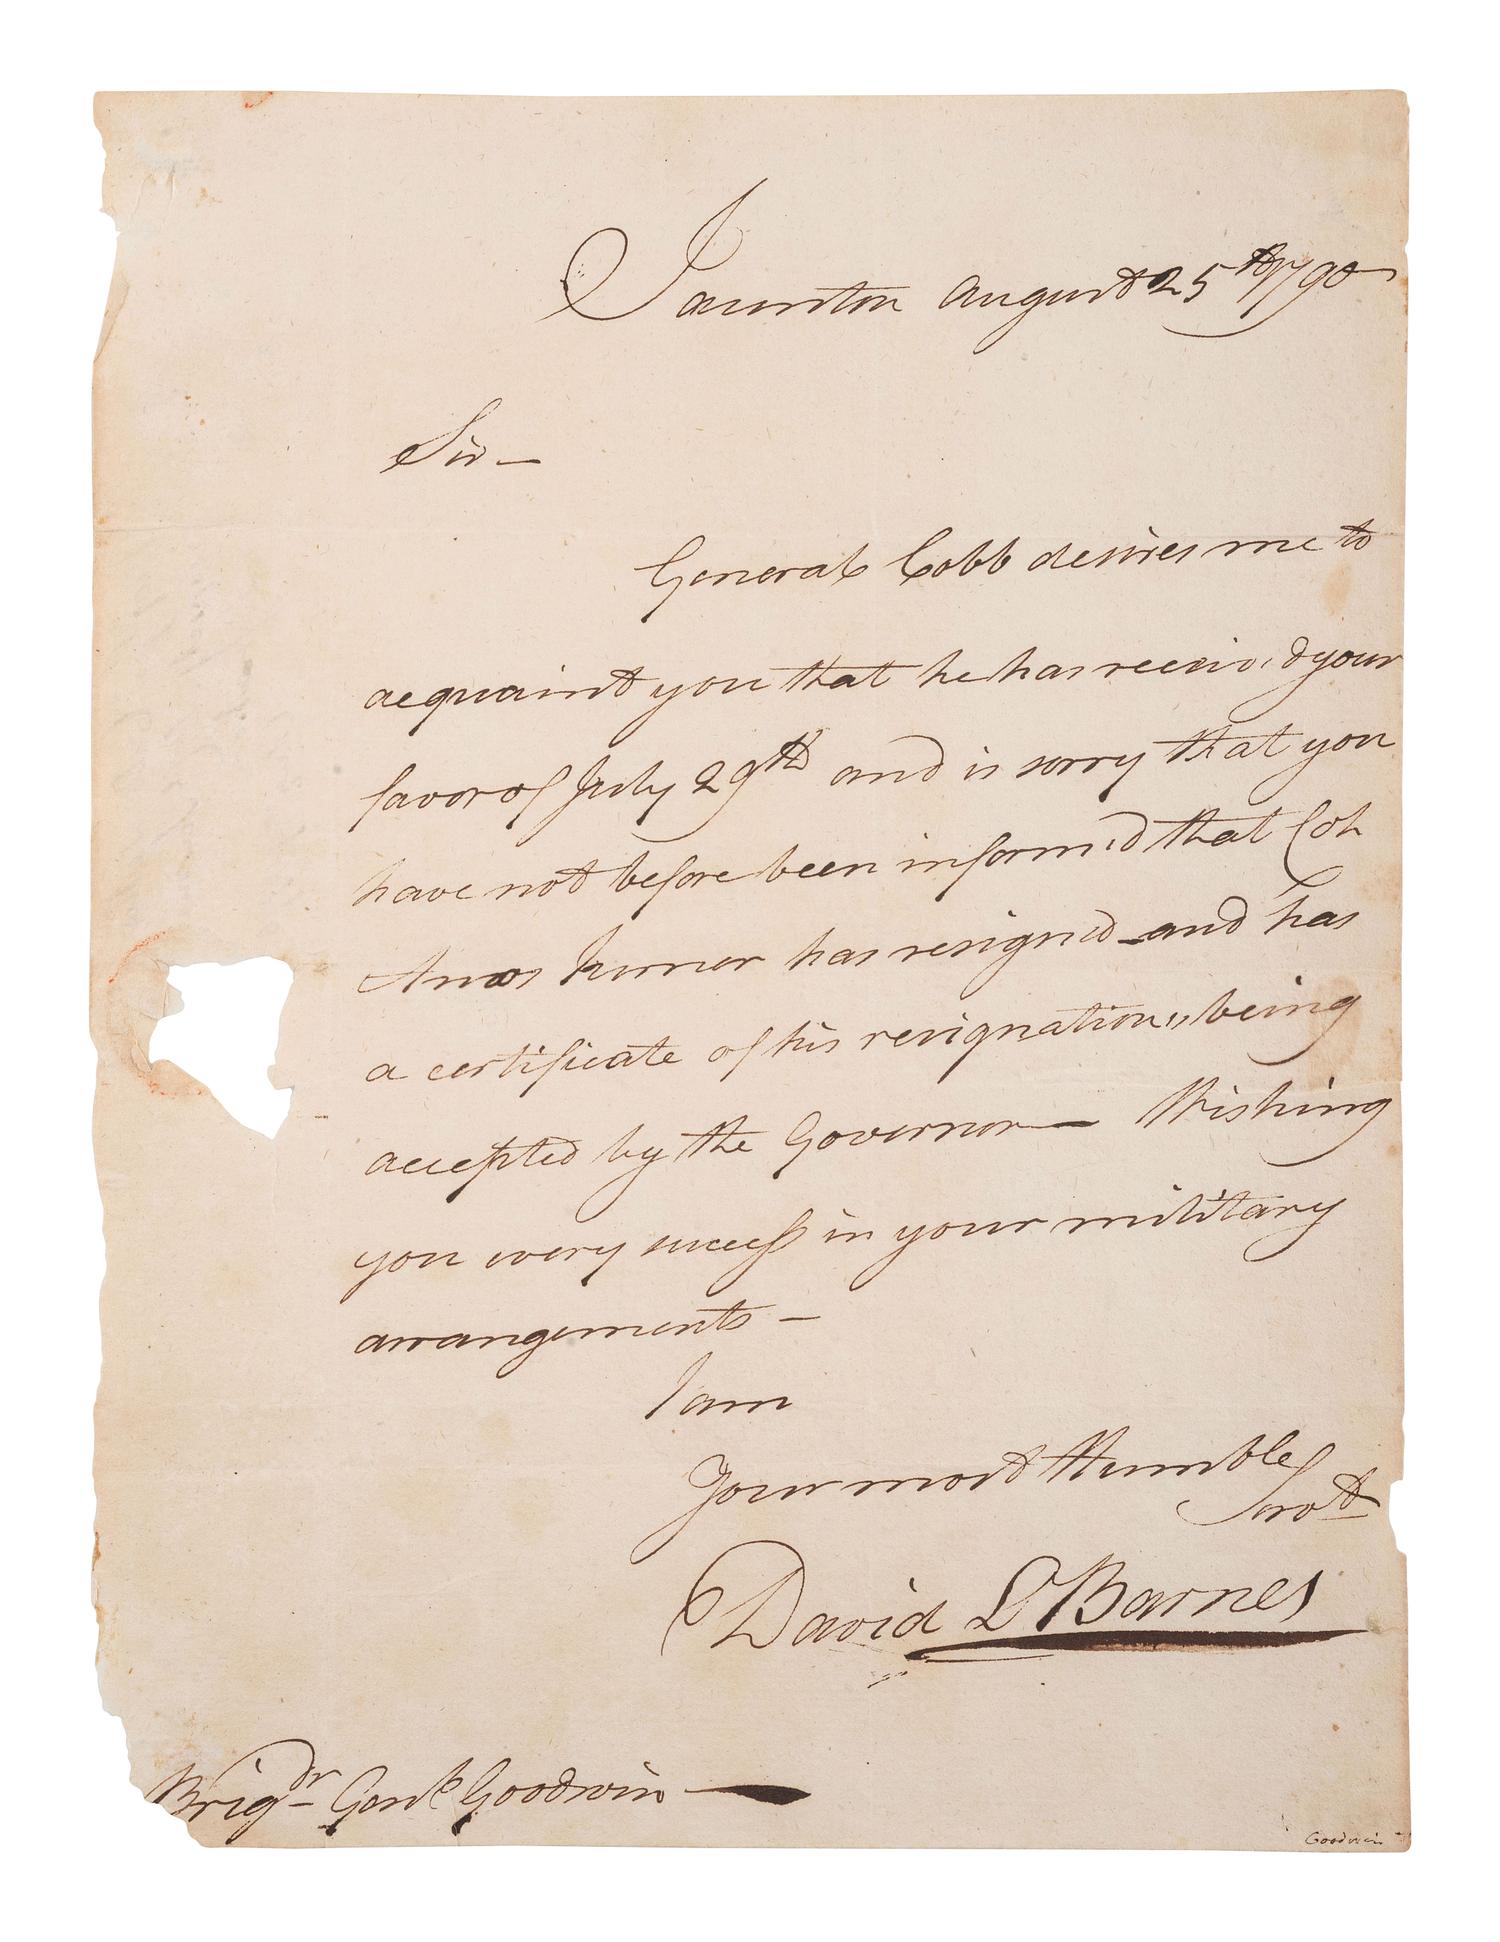 Taunton August 25th 1790
Sir —
General Cobb desires me to
acquaint you that he has receiv'd your
favor of July 29th and is sorry that you
have not before been inform'd that Col.
Amos Turner has resign'd and has
a certificate of his resignation,, being
accepted by the Governor — Wishing
you every success in your military
arrangements —
I am
Your most Humble
Servt
David L Barnes
Brigdr Genl Goodwin —
Goodwin